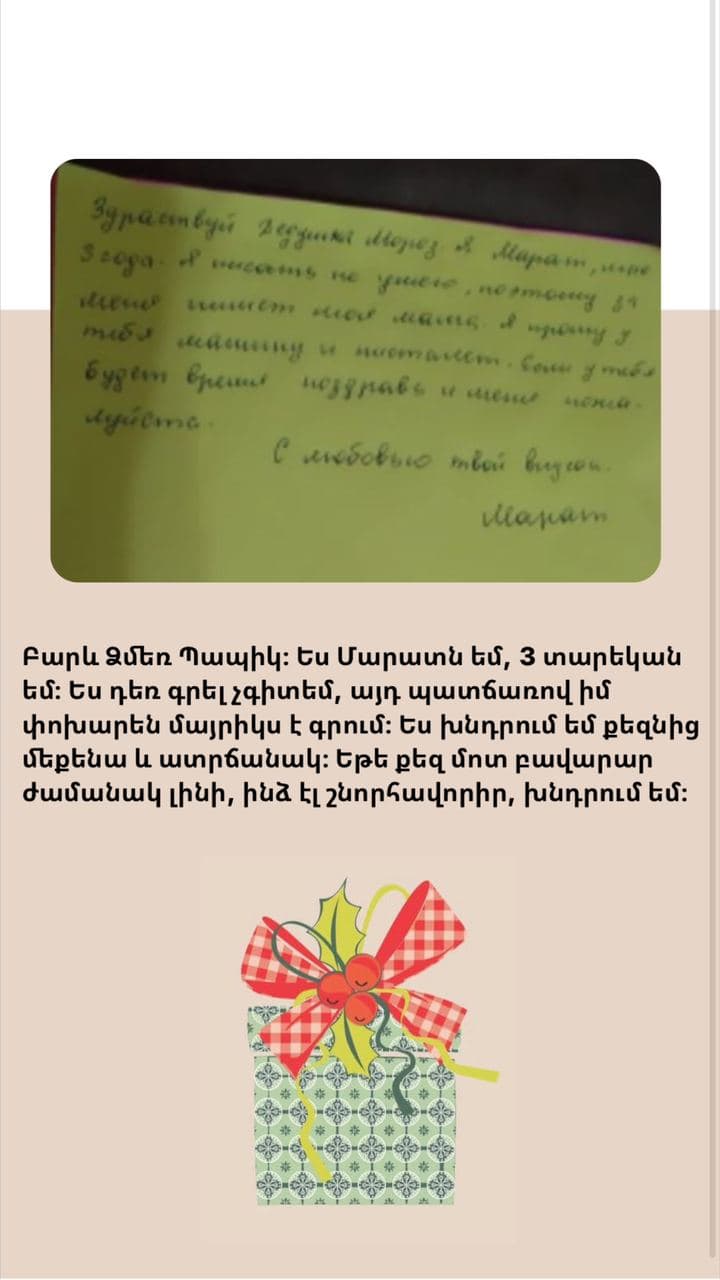 Здраствуй Дедушка Мороз Я Марат, мне
3 года. Я писать не умею, поэтому за
меня пишет моя мама. Я прошу у
тебя машину и пистолет. Если у тебя
будет время поздравь и меня пожа-
луйста.
С любовью твой внучок.
Марат
Բարև Ձմեռ Պապիկ: Ես Մարատն եմ, 3 տարեկան
եմ: Ես դեռ գրել չգիտեմ, այդ պատճառով իմ
փոխարեն մայրիկս է գրում: Ես խնդրում եմ քեզնից
մեքենա և ատրճանակ: Եթե քեզ մոտ բավարար
ժամանակ լինի, ինձ էլ շնորհավորիր, խնդրում եմ: